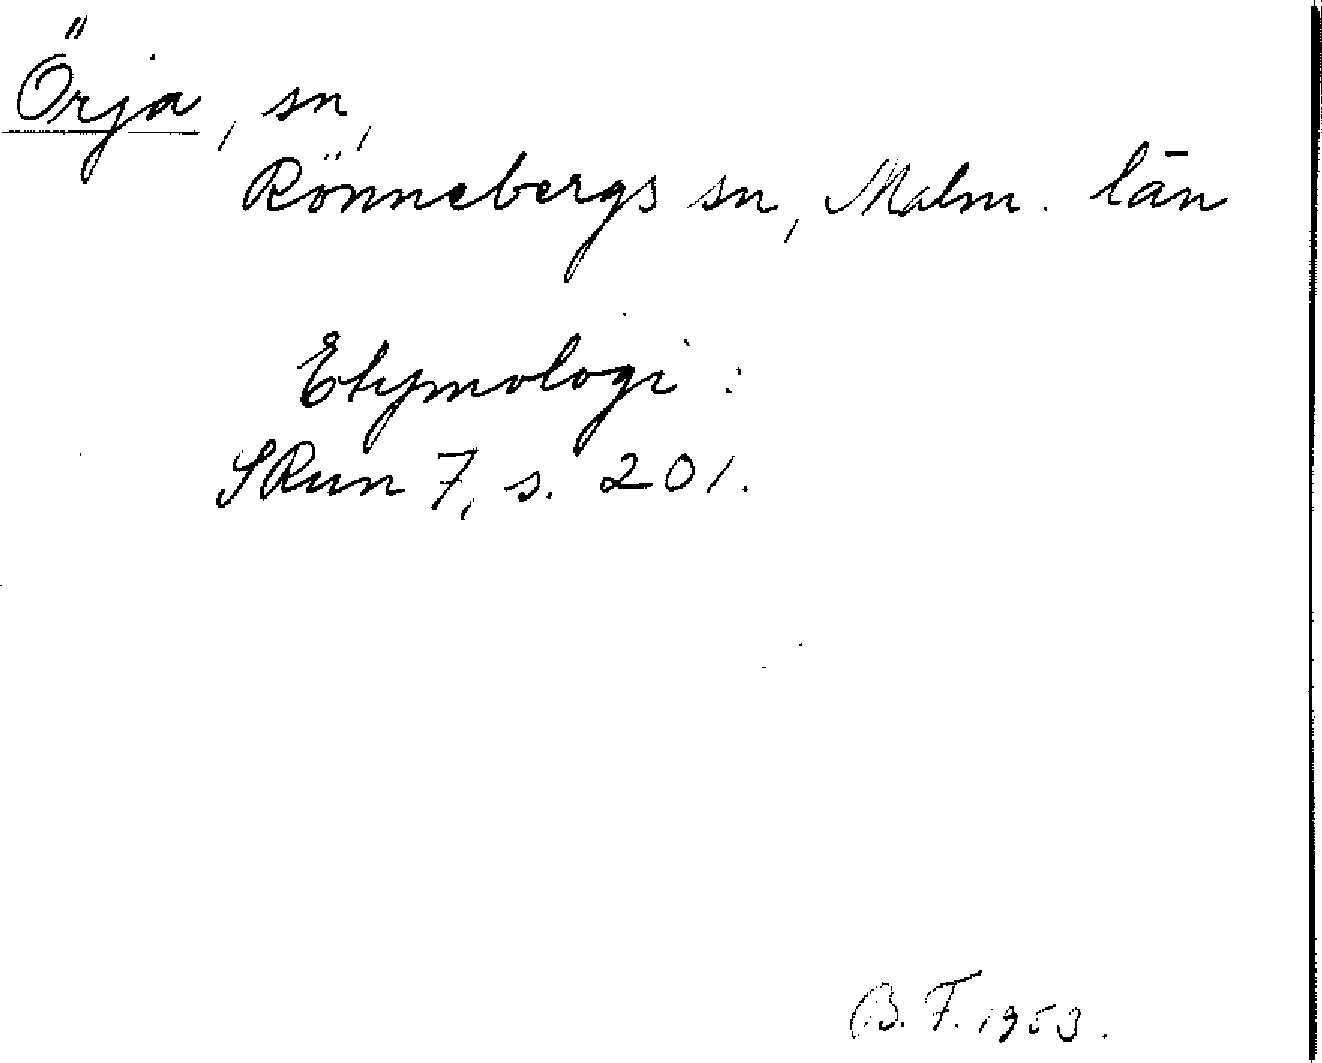 Örja, sn,
Rönnebergs sn, Malm. län
Etymologi:
SRun 7, s. 201.
B. F. 1953.